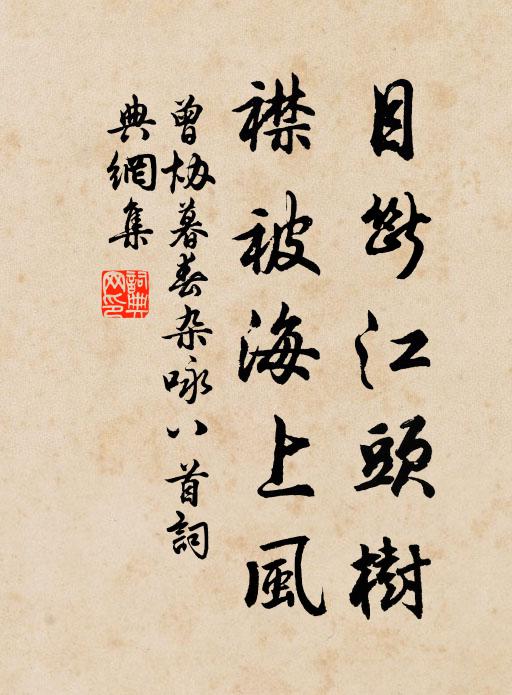 目斷江頭樹
襟披海上風
曾協暮春杂咏八首詞
典網集
詞典网印